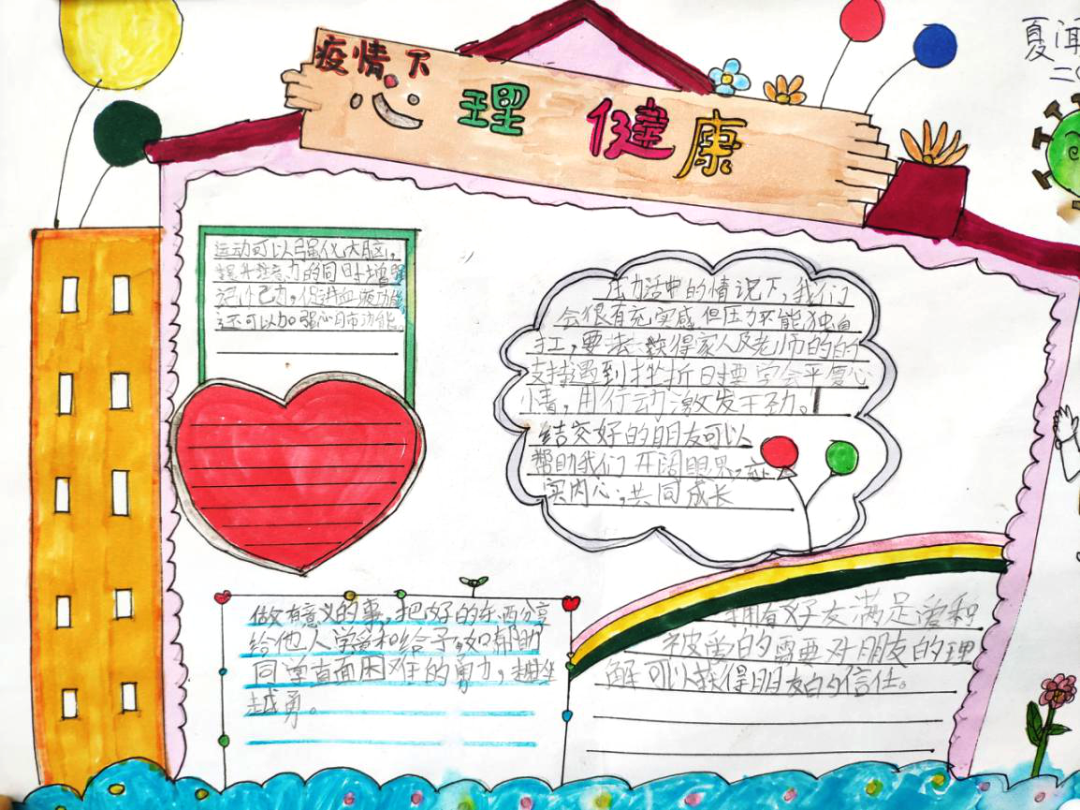 疫情下
心理健康
夏闻
二〇
运动可以强化大脑，
提升注意力的同时增强
记忆力，促进血液功能
还可以加强心肺功能。
压力适中的情况下，我们
会很有充实感但压力不能独自
扛，要去获得家人及老师的的
支持遇到挫折时要学会平复心
情，用行动激发干劲。
结交好的朋友可以
帮助我们开阔眼界，
实内心，共同成长
做有意义的事，把好的东西分享
给他人学爱和给予如帮助
同学直面困难的勇力，
越勇。
拥有好友满足爱和
被爱的需要对朋友的理
解可以获得朋友的信任。